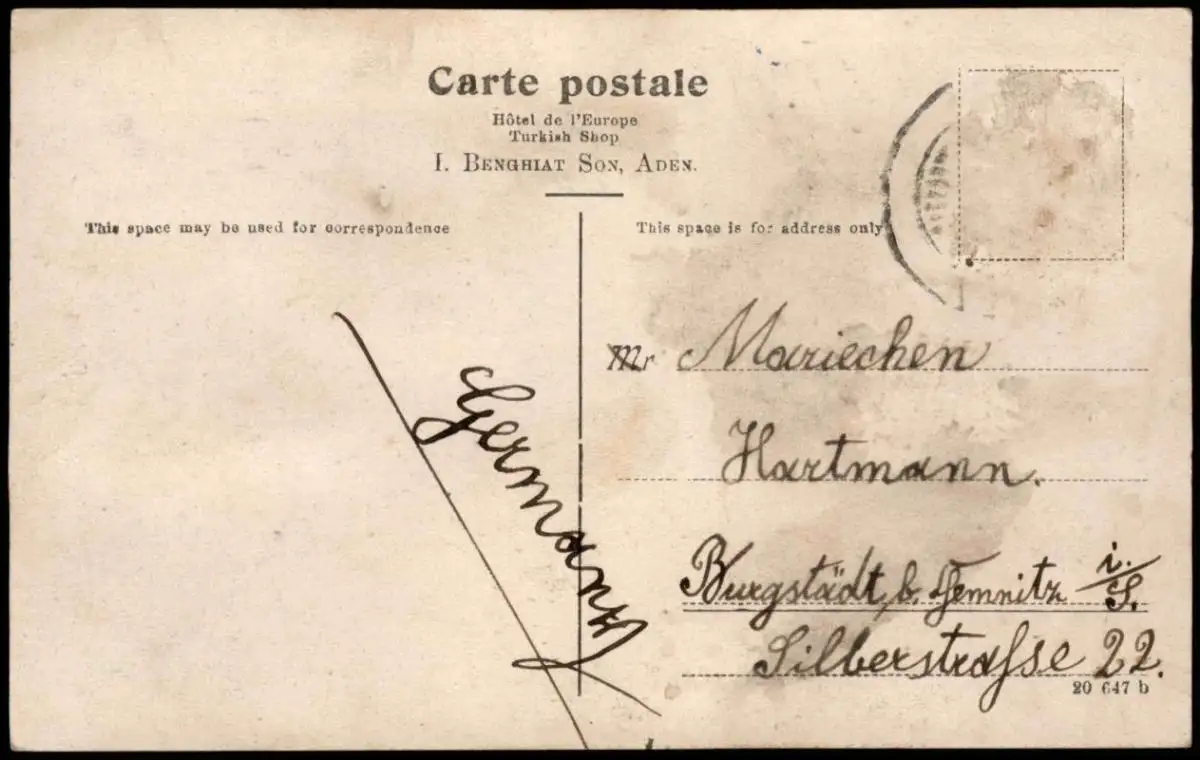 Carte postale
Hôtel de l'Europe
Turkish Shop
I. BENGHIAT SON, ADEN.
This space may be used for correspondence
This space is for address only
Mr Mariechen
Hartmann.
Burgstädt, b. Chemnitz i./S.
Silberstrasse 22.
Germany
20 647 b